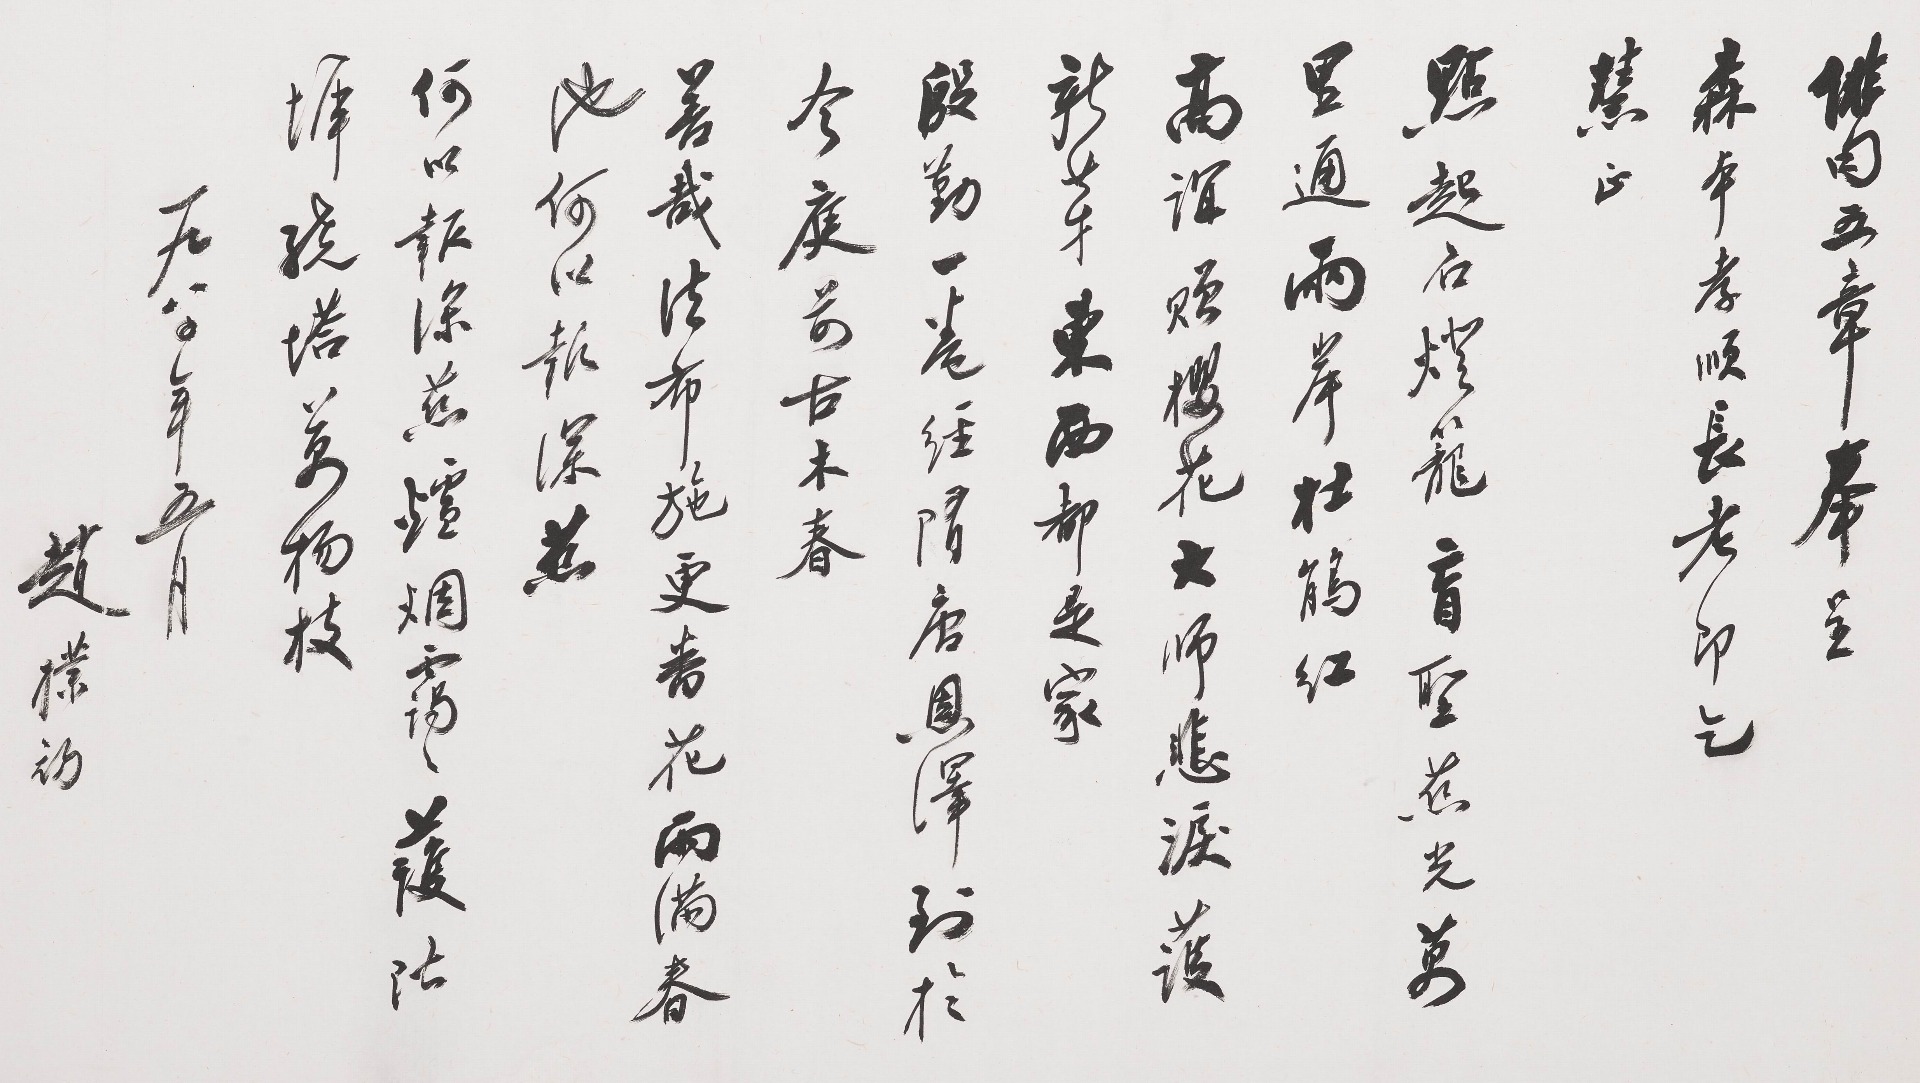 俳句五章奉呈
森本孝順長老即乞
慧正
點起石燈籠盲聖慈光萬
里通兩岸杜鵑紅
高誼贈櫻花大師悲淚護
新芽東西都是家
殷勤一卷經隋唐恩澤到於
今庭前古木春
善哉法布施更番花雨滿春
池何以報深慈
何以報深慈爐烟靄々護階
墀繞塔萬楊枝
一九八〇年五月
趙樸初